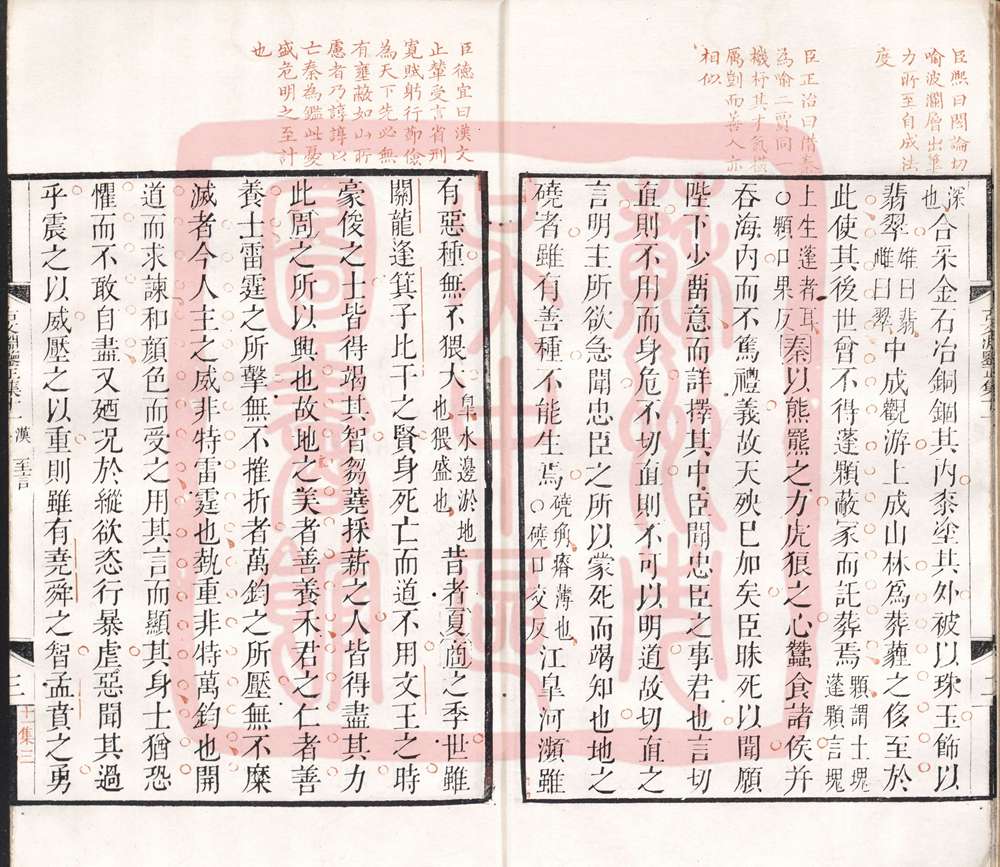 臣熙曰閎論切
喻波瀾層出筆
力所至自成法
度
臣正治曰借秦
為喻二賈同一
機杼其才氣橫
厲對而善人亦
相似
深也合采金石冶銅錮其內桼塗其外被以珠玉飾以
翡翠雄曰翡雌曰翠中成觀游上成山林爲葬薶之侈至於
此使其後世曾不得蓬顆蔽冢而託葬焉顆謂土塊蓬顆言塊
上生蓬者耳○顆口果反秦以熊羆之力虎狼之心蠶食諸侯并
吞海內而不篤禮義故天殃已加矣臣昧死以聞願
陛下少畱意而詳擇其中臣聞忠臣之事君也言切
直則不用而身危不切直則不可以明道故切直之
言明主所欲急聞忠臣之所以蒙死而竭知也地之
磽者雖有善種不能生焉磽埆瘠薄也○磽口交反江皐河瀕雖
臣德宜曰漢文
止輦受言省刑
寬賦躬行節儉
為天下先必無
有壅蔽如山所
慮者乃諄諄以
亡秦為鑑此憂
盛危明之至計
也
有惡種無不猥大皐水邊淤地也猥盛也昔者夏商之季世雖
關龍逢箕子比干之賢身死亡而道不用文王之時
豪俊之士皆得竭其智芻蕘採薪之人皆得盡其力
此周之所以興也故地之美者善養禾君之仁者善
養士雷霆之所擊無不摧折者萬鈞之所壓無不糜
滅者今人主之威非特雷霆也埶重非特萬鈞也開
道而求諫和顏色而受之用其言而顯其身士猶恐
懼而不敢自盡又廼況於縱欲恣行暴虐惡聞其過
乎震之以威壓之以重則雖有堯舜之智孟賁之勇
古文淵鑒正集十一 漢 至言
三
十一集三